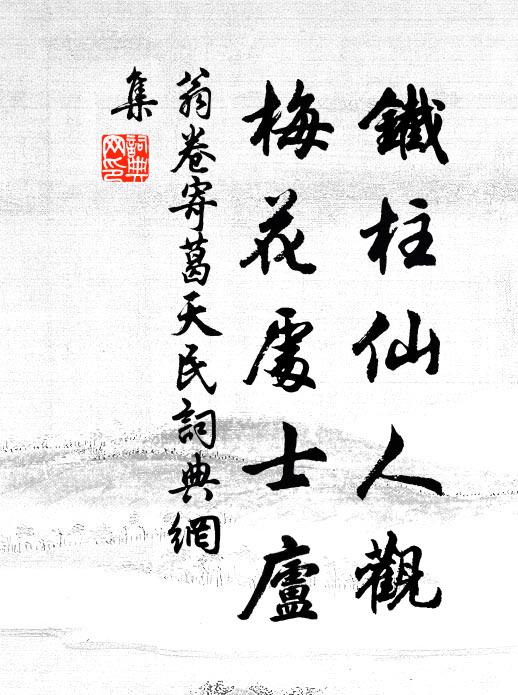 鐵柱仙人觀
梅花處士廬
翁卷寄葛天民詞典網
集
詞典
网印